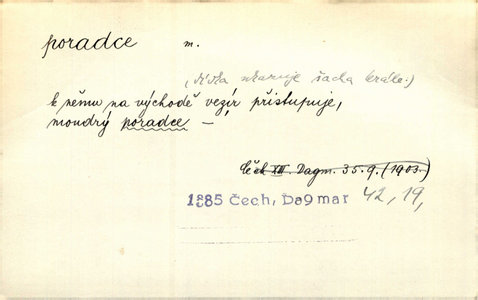 poradce m.
k němu na východě vezír přistupuje,
moudrý poradce —
Čech XIII. Dagm. 35. 9. (1903.)
1885 Čech, Da9mar 42, 19,